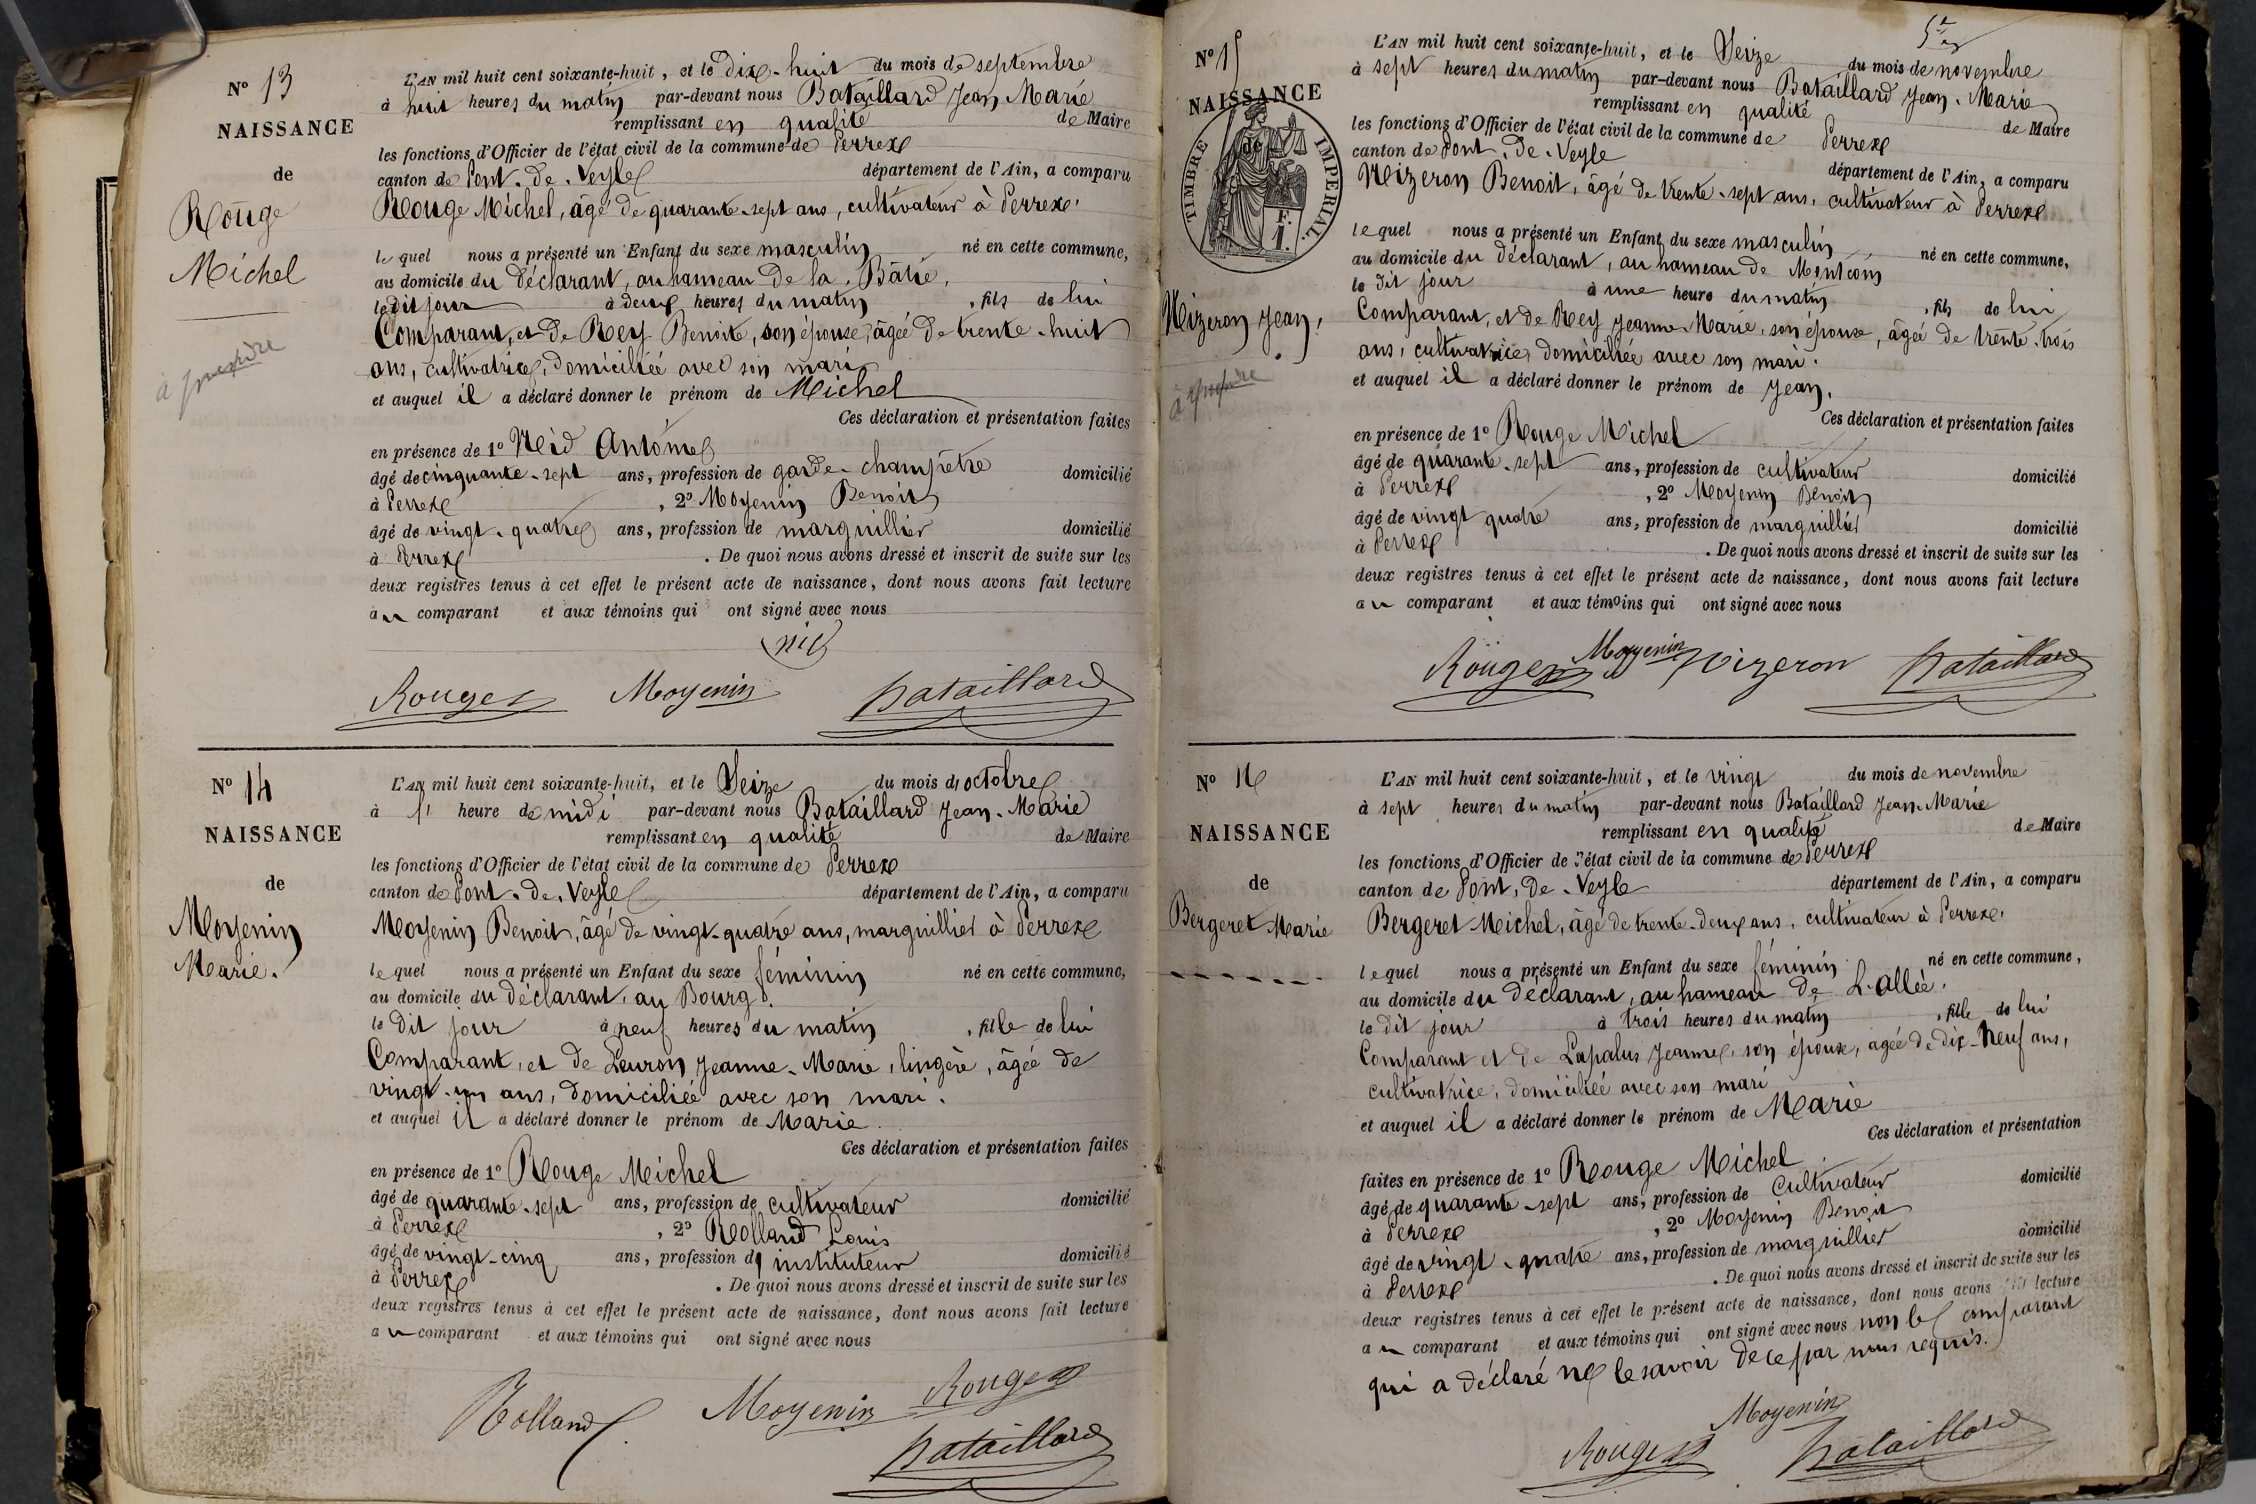 N° 13
NAISSANCE
de
Rouge
Michel
L'AN mil huit cent soixante-huit, et le dix-huit du mois de septembre
à huit heures du matin par-devant nous Bataillard Jean-Marie
remplissant en qualité de Maire
les fonctions d'Officier de l'état civil de la commune de Perrex
canton de Pont-de-Veyle département de l'Ain, a comparu
Rouge Michel, âgé de quarante-sept ans, cultivateur à Perrex,
lequel nous a présenté un Enfant du sexe masculin né en cette commune,
au domicile du déclarant, au hameau de la Bâtie,
le dit jour à deux heures du matin, fils de lui
Comparant, et de Rey Benoite, son épouse, âgée de trente-huit
ans, cultivatrice, domiciliée avec son mari
et auquel il a déclaré donner le prénom de Michel
Ces déclaration et présentation faites
en présence de 1° Nid Antoine
âgé de cinquante-sept ans, profession de garde-champêtre domicilié
à Perrex, 2° Moyenin Benoit
âgé de vingt-quatre ans, profession de marguillier domicilié
à Perrex. De quoi nous avons dressé et inscrit de suite sur les
deux registres tenus à cet effet le présent acte de naissance, dont nous avons fait lecture
au comparant et aux témoins qui ont signé avec nous
nid
Rouge Moyenin Bataillard
N° 14
NAISSANCE
de
Moyenin
Marie.
L'AN mil huit cent soixante-huit, et le Seize du mois d'octobre
à 1 heure de midi par-devant nous Bataillard Jean-Marie
remplissant en qualité de Maire
les fonctions d'Officier de l'état civil de la commune de Perrex
canton de Pont-de-Veyle département de l'Ain, a comparu
Moyenin Benoit, âgé de vingt-quatre ans, marguillier à Perrex
lequel nous a présenté un Enfant du sexe féminin né en cette commune,
au domicile du déclarant, au Bourg.
le dit jour à neuf heures du matin, fille de lui
Comparant, et de Leuron Jeanne-Marie, lingère, âgée de
vingt-un ans, domiciliée avec son mari.
et auquel il a déclaré donner le prénom de Marie
Ces déclaration et présentation faites
en présence de 1° Rouge Michel
âgé de quarante-sept ans, profession de cultivateur domicilié
à Perrex, 2° Rolland Louis
âgé de vingt-cinq ans, profession d'instituteur domicilié
à Perrex. De quoi nous avons dressé et inscrit de suite sur les
deux registres tenus à cet effet le présent acte de naissance, dont nous avons fait lecture
au comparant et aux témoins qui ont signé avec nous
Rolland Moyenin Rouge
Bataillard
N° 15
NAISSANCE
de
TIMBRE IMPERIAL
F.
1.
Nizeron Jean,
L'AN mil huit cent soixante-huit, et le Seize du mois de novembre
à sept heures du matin par-devant nous Bataillard Jean-Marie
remplissant en qualité de Maire
les fonctions d'Officier de l'état civil de la commune de Perrex
canton de Pont-de-Veyle département de l'Ain, a comparu
Nizeron Benoit, âgé de trente-sept ans, cultivateur à Perrex
lequel nous a présenté un Enfant du sexe masculin né en cette commune,
au domicile du déclarant, au hameau de Montcoin
le dit jour à une heure du matin, fils de lui
Comparant, et de Rey Jeanne-Marie, son épouse, âgée de trente-trois
ans, cultivatrice, domiciliée avec son mari.
et auquel il a déclaré donner le prénom de Jean,
Ces déclaration et présentation faites
en présence de 1° Rouge Michel
âgé de quarante-sept ans, profession de cultivateur domicilié
à Perrex, 2° Moyenin Benoit
âgé de vingt quatre ans, profession de marguillier domicilié
à Perrex. De quoi nous avons dressé et inscrit de suite sur les
deux registres tenus à cet effet le présent acte de naissance, dont nous avons fait lecture
au comparant et aux témoins qui ont signé avec nous
Rouge Moyenin Nizeron Bataillard
N° 16
NAISSANCE
de
Bergeret Marie
L'AN mil huit cent soixante-huit, et le vingt du mois de novembre
à sept heures du matin par-devant nous Bataillard Jean-Marie
remplissant en qualité de Maire
les fonctions d'Officier de l'état civil de la commune de Perrex
canton de Pont-de-Veyle département de l'Ain, a comparu
Bergeret Michel, âgé de trente-deux ans, cultivateur à Perrex,
lequel nous a présenté un Enfant du sexe féminin né en cette commune,
au domicile du déclarant, au hameau de L'allée.
le dit jour à trois heures du matin, fille de lui
Comparant et de Lapalus Jeanne, son épouse, agée de dix-neuf ans,
cultivatrice, domiciliée avec son mari
et auquel il a déclaré donner le prénom de Marie
Ces déclaration et présentation
faites en présence de 1° Rouge Michel
âgé de quarante-sept ans, profession de Cultivateur domicilié
à Perrex, 2° Moyenin Benoit
âgé de vingt-quatre ans, profession de marguillier domicilié
à Perrex. De quoi nous avons dressé et inscrit de suite sur les
deux registres tenus à cet effet le présent acte de naissance, dont nous avons fait lecture
au comparant et aux témoins qui ont signé avec nous non le comparant
qui a déclaré ne le savoir de ce par nous requis.
Moyenin
Rouge Bataillard